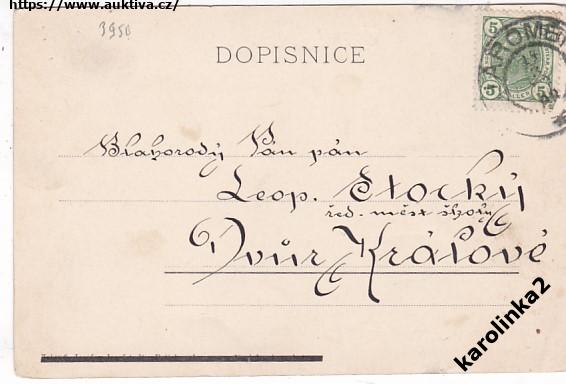 https://www.auktiva.cz/
3950
DOPISNICE
5 5
5 5
AROMĚ
Blahorodý Pán pán
Leop. Štocký
řed. měst. školy
Dvůr Králové
karolinka2